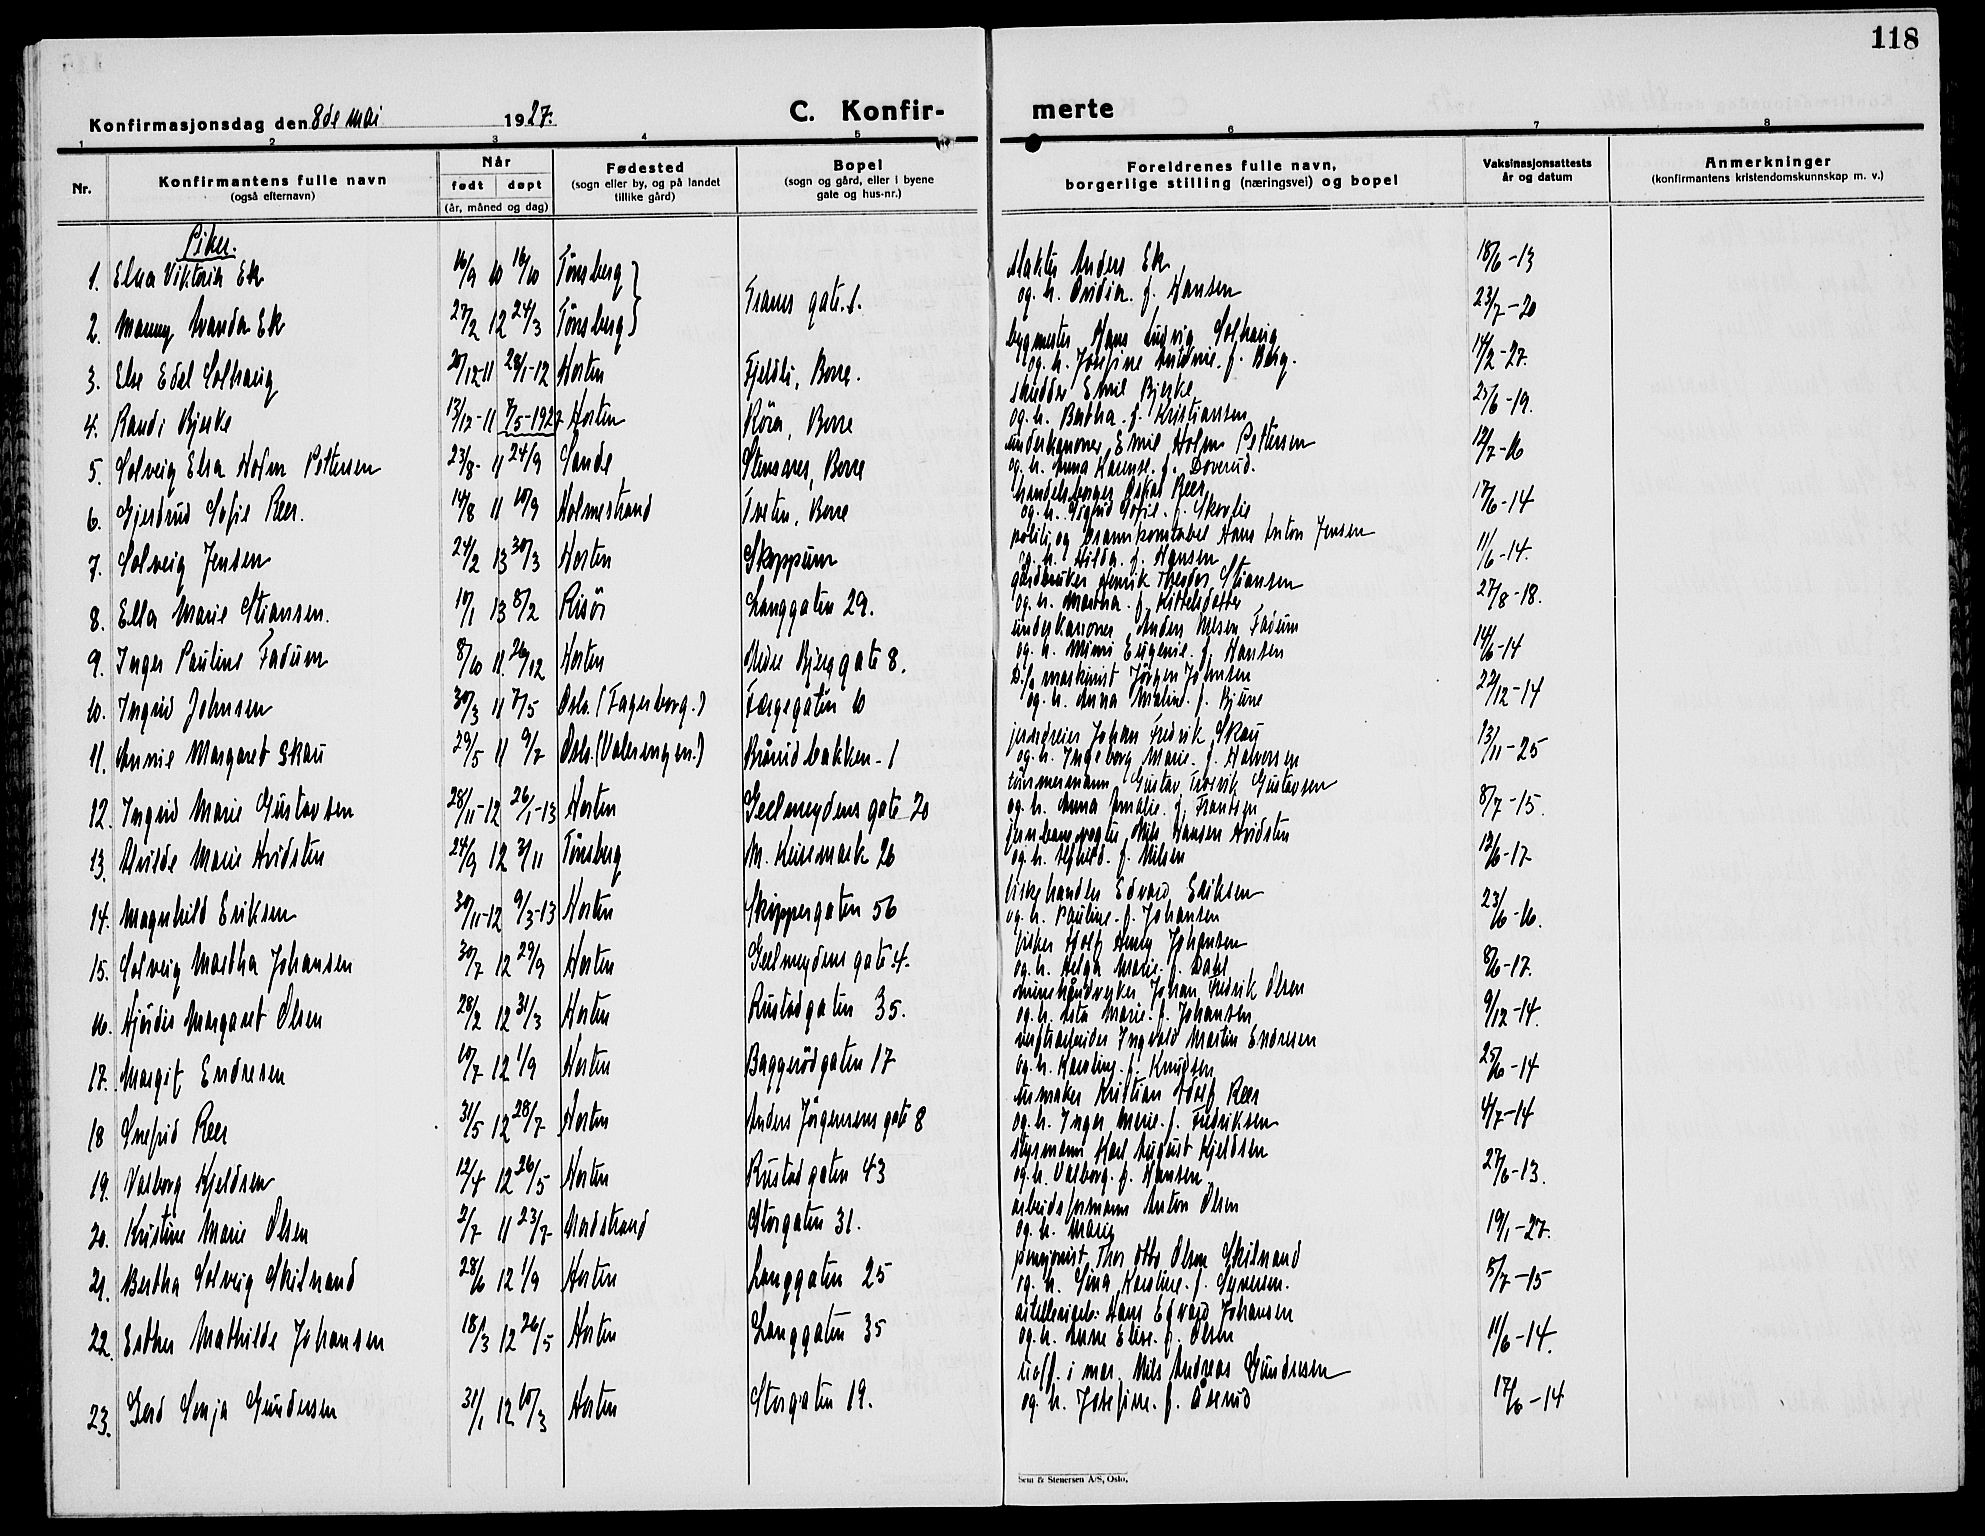 118
Konfirmasjonsdag den 8de mai 1927.
C. Konfir-
merte
1 2 3 4 5 6 7 8
Nr.
Konfirmantens fulle navn
(også efternavn)
Når
født døpt
(år, måned og dag)
Fødested
(sogn eller by, og på landet
tillike gård)
Bopel
(sogn og gård, eller i byene
gate og hus-nr.)
Foreldrenes fulle navn,
borgerlige stilling (næringsvei) og bopel
Vaksinasjonsattests
år og datum
Anmerkninger
(konfirmantens kristendomskunnskap m. v.)
Piker.
1. Elsa Viktoria Ek 16/9 10 16/10 Tønsberg
slakter Anders Ek 18/6-13
og h. Ovidia. f. Hansen
2. Wanda Ek 27/2 12 24/3 Tønsberg gate 1. 23/7-20
bygmester Hans Ludvig Solhaug
3. Else Edel Solhaug 20/12-11 28/1-12 Horten Fjeldli, Borre.
og h. Josefine f. Berg. 14/2-27.
skredder Emil Bjerke
4. Randi Bjerke 13/12-11 7/5-1922 Horten Røra, Borre
og h. Bertha. f. Kristiansen 25/6-19.
underkanoner Emil Holm Pettersen
5. Solveig Elsa Holm Pettersen 23/8- 11 24/9 Sande Borre
og h. Anna f. Doverud. 12/7-16
handelsborger Oskar Reer
6. Gjertrud Sofie Reer. 14/8 11 10/9 Holmestrand Tveten, Borre
og h. Sigrid Sofie. f. Skovlie 17/6-14
politi og brannkonstabel Hans Anton Jensen
7. Solveig Jensen 24/2 13 30/3 Horten Skoppum
og h. Hilda. f. Hansen 11/6-14.
gårdbruker Henrik Theodor Stiansen
8. Ella Marie Stiansen. 10/1 13 8/2 Risör Langgaten 29.
og h. Martha. f. Kittelsdatter 27/8-18.
underkanoner Anders Nilsen Fadum
9. Inger Pauline Fadum 8/10 11. 26/12 Horten Nedre gate 8.
og h. Mimi Eugenie. f. Hansen 14/6-14
maskinist Jörgen Johnsen
10. Ingrid Johnsen 30/3 11 7/5 Oslo. (Fagerborg.) Færgegaten 10
og h. Anna Maline. f. Bjune 22/12-14
Johan Fredrik Skau
11. Annie Margaret Skau 29/5 11 9/7 Oslo. (Valerengen.) Brårudbakken-1
og h. Ingeborg Marie. f. Halvorsen 13/11-25
tømmermann Gustav Fredrik Gustavsen
12. Ingrid Marie Gustavsen 28/11-12 26/1-13 Horten Geelmeydens gate 20
og h. Anna Amalie. f. Frantzen 8/7-15.
jernbanevogter Nils Hansen Hvidsten
13. Marie Hvidsten 24/9 12 3/11 Tønsberg M. Keisemark 26
og h. f. Nilsen 12/6-17
fiskehandler Edvard Eriksen
14. Magnhild Eriksen 30/11-12 9/3-13 Horten Skippergaten 56
og h. Pauline. f. Johansen 23/6-16.
fisker Adolf Henry Johansen
15. Solveig Martha Johansen 30/7 12 29/9 Horten Geelmeydens gate 4.
og h. Helga Marie. f. Dahl 8/6-17.
minehåndverker Johan Fredrik Olsen
16. Hjördis Margaret Olsen 28/2 12 31/3 Horten Rustadgaten 35.
og h. Asta Marie. f. Johansen 9/12-14.
verftsarbeider Ingvald Martin Endresen
17. Margit Endresen 10/7 12 1/9 Horten Baggerödgaten 17
og h. Karoline. f. Knudsen 25/6-14
urmaker Kristian Adolf Reer
18 Snefrid Reer 31/5 12 28/7 Horten Anders Jörgensens gate 8
og h. Inger Marie. f. Fredriksen 4/7-14
styrmann Karl August Kjeldsen
19. Valborg Kjeldsen 12/4 12 26/5 Horten Rustadgaten 43
og h. Valborg. f. Hansen 27/6-13.
arbeidsformann Anton Olsen
20. Kristine Marie Olsen 2/7 11 23/7 Nordstrand Storgaten 31.
og h. Marie 19/1-27.
pensjonist Thor Otto Olsen Skilnand
21. Bertha Solveig Skilnand 28/6 12 1/9 Horten Langgaten 25
og h. Gina Karoline. f. Syversen. 5/7-15
Hans Edvard Johansen
22. Esther Mathilde Johansen 18/3 12 26/5 Horten Langgaten 35
og h. Anne Elise. f. Olsen 11/6-14.
uoff. i mar. Nils Andreas Gundersen
23. Gerd Sonja Gundersen 31/1 12 10/3 Horten Storgaten 19.
og h. Josefine. f. Åserud 17/6-14
Sem & Stenersen A/S, Oslo.